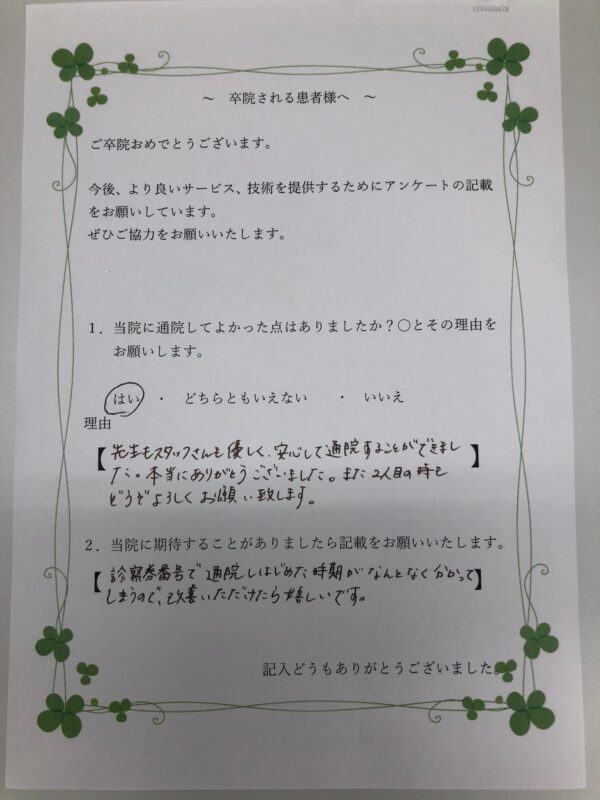 ～　卒院される患者様へ　～
ご卒院おめでとうございます。
今後、より良いサービス、技術を提供するためにアンケートの記載
をお願いしています。
ぜひご協力をお願いいたします。
1．当院に通院してよかった点はありましたか？〇とその理由を
お願いします。
はい　・　どちらともいえない　　・　いいえ
理由
【先生もスタッフさんも優しく、安心して通院することができまし】
た。本当にありがとうございました。また2人目の時も
どうぞよろしくお願い致します。
2．当院に期待することがありましたら記載をお願いいたします。
【診察券番号で通院しはじめた時期がなんとなく分かって】
しまうので、改善いただけたら嬉しいです。
記入どうもありがとうございました。